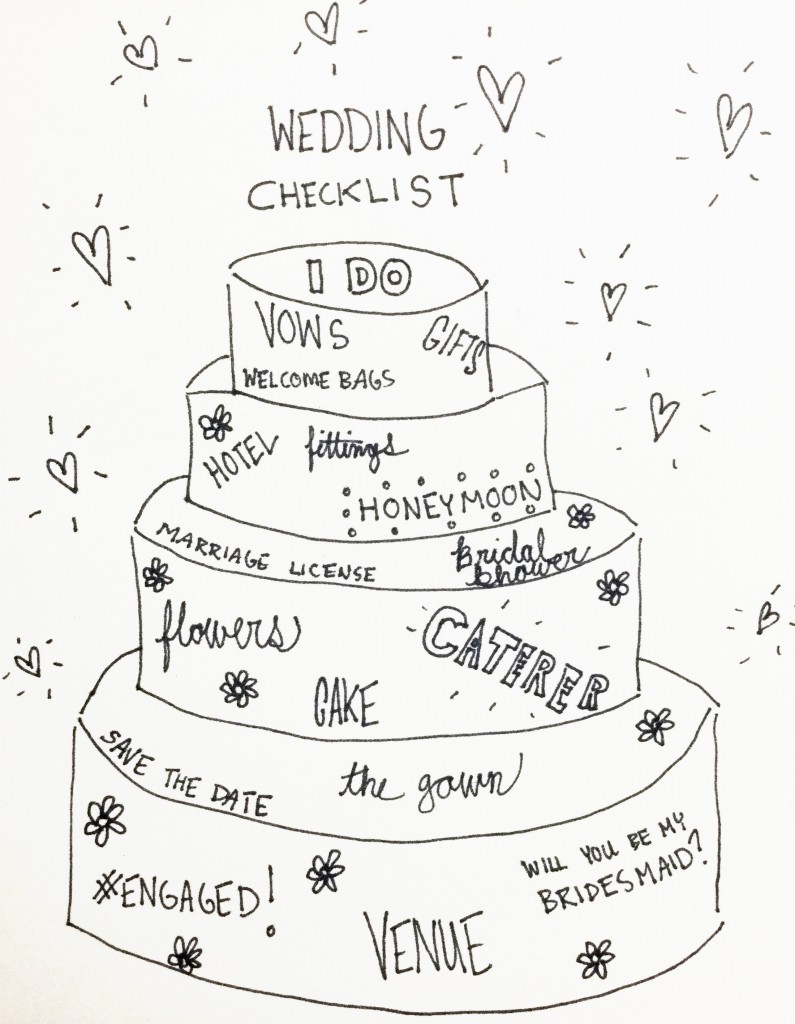 WEDDING
CHECKLIST
I DO
VOWS
GIFTS
WELCOME BAGS
HOTEL
fittings
HONEYMOON
MARRIAGE LICENSE
Bridal
Shower
flowers
CATERER
CAKE
SAVE THE DATE
the gown
#ENGAGED!
WILL YOU BE MY
BRIDESMAID?
VENUE